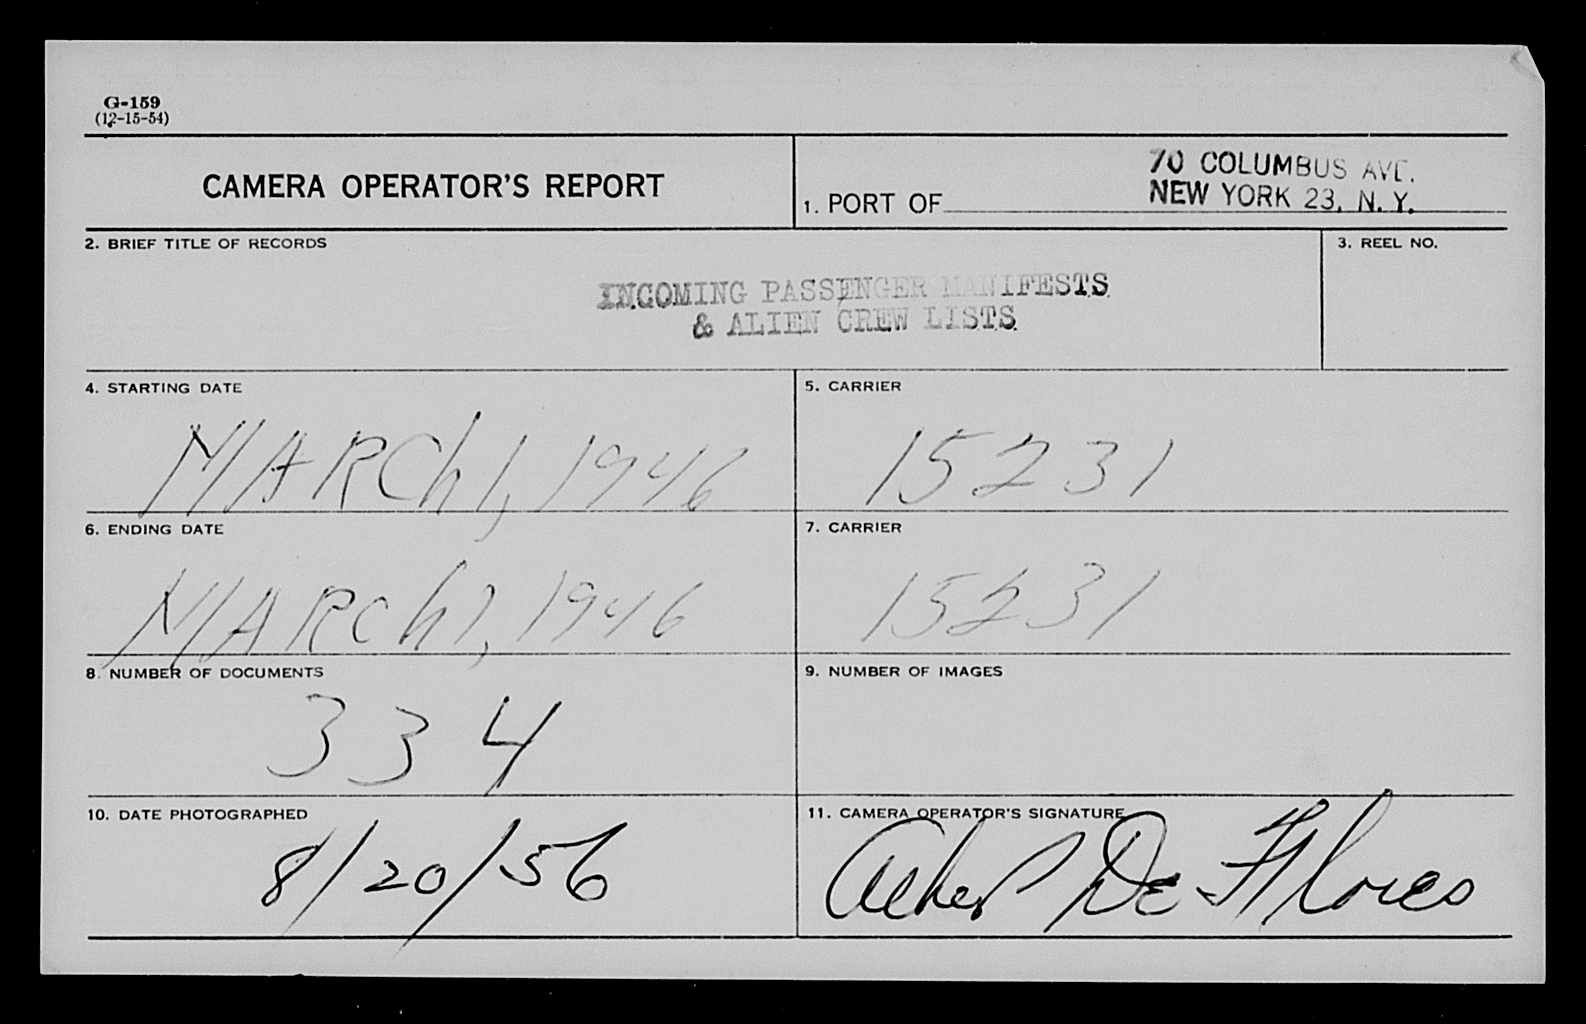 G-159
(12-15-54)
CAMERA OPERATOR'S REPORT
1. PORT OF
70 COLUMBUS AVE.
NEW YORK 23, N. Y.
2. BRIEF TITLE OF RECORDS
INCOMING PASSENGER MANIFESTS
& ALIEN CREW LISTS
3. REEL NO.
4. STARTING DATE
MARCh 1, 1946
5. CARRIER
15231
6. ENDING DATE
MARCh 1, 1946
7. CARRIER
15231
8. NUMBER OF DOCUMENTS
334
9. NUMBER OF IMAGES
10. DATE PHOTOGRAPHED
8/20/56
11. CAMERA OPERATOR'S SIGNATURE
De Flores